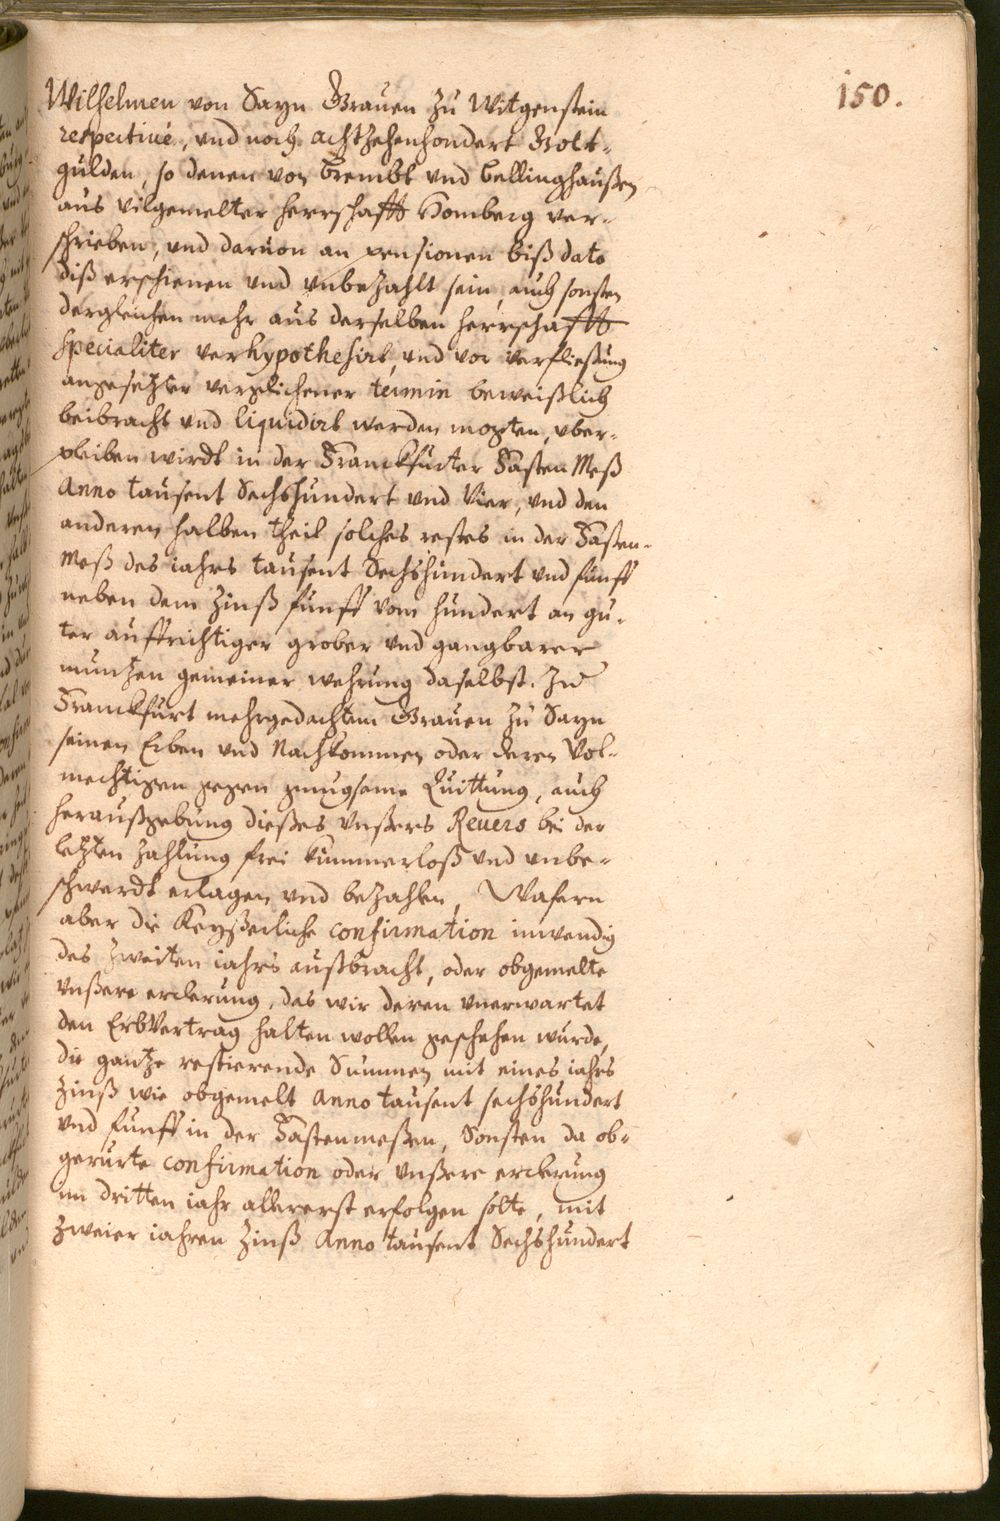 150.
Wilhelmen von Sayn Grauen zu Witgenstein
respectiuè, vnd noch achtzehenhondert Golt-
gulden, so denen von Brembt vnd Bellinghaußen
aus vilgemelter herrschafft Homberg ver-
schrieben, vnd daruon an pensionen biß dato
diß erschienen vnd vnbezahlt sein, auch sonsten
dergleichen mehr aus derselben herrschafft
specialiter verhypothesirt, vnd vor verfließung
angesetzter verglichener termin beweißlich
beibracht vnd liquidirt werden mogten, vber-
pleiben wirdt in der Franckfurter Fasten Meß
Anno tausent Sechshundert vnd Vier, vnd den
anderen halben theil solches restes in der Fasten-
Meß des iahrs tausent Sechshundert vnd funff
neben dem Zinß funff vom hundert an gu-
ter auffrichtiger grober vnd gangbarer
muntzen gemeiner wehrung daselbst. Zu
Franckfurt mehrgedachtem Grauen zu Sayn
seinen Erben vnd Nachkommen oder deren Vol-
mechtigen gegen gnugsame Quittung, auch
heraußgebung dießes vnßers Reuers bei der
letzten Zahlung frei kummerloß vnd vnbe-
schwerdt erlagen vnd bezahlen, Wafern
aber die Keyßerliche confirmation inwendig
des zweiten iahrs außbracht, oder obgemelte
vnßere erclerung, das wir deren vnerwartet
den ErbVertrag halten wollen geschehen wurde,
die gantze restierende Summen mit eines iahrs
Zinß wie obgemelt Anno tausent sechshundert
vnd funff in der Fastenmeßen, Sonsten da ob-
gerurte confirmation oder vnßere erclerung
im dritten iahr allererst erfolgen solte, mit
zweier iahren Zinß Anno tausent Sechshundert